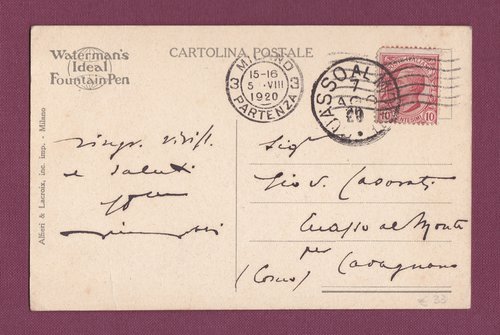 Waterman's
Ideal
Fountain Pen
CARTOLINA POSTALE
MILANO
15-16
5 · VIII
1920
PARTENZA
3 3
CUASSO AL MONTE
7
AGO
20
10 10
Alfieri & Lacroix, inc. imp. - Milano
e saluti
Sigr
Giov. Casorati
Cuasso al Monte
per Cavagnano
(Como)
€ 33